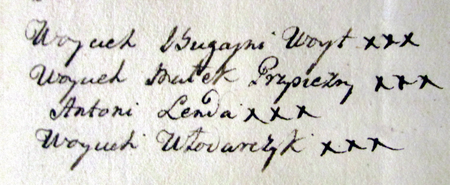 Woyciech Bugayni Woyt xxx
Woyciech Małek Przysiężny xxx
Antoni Lenda xxx
Woyciech Włodarczyk xxx